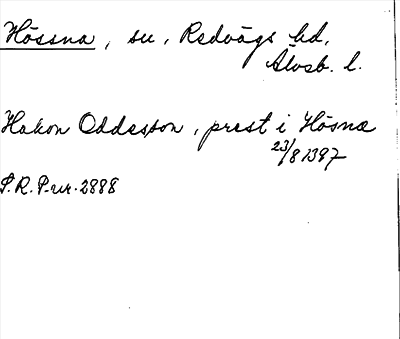 Hössna, sn, Redvägs hd,
Älvsb. l.
Hakon Oddsson, prest i Hösna
23/8 1397
S.R. Pur. 2888